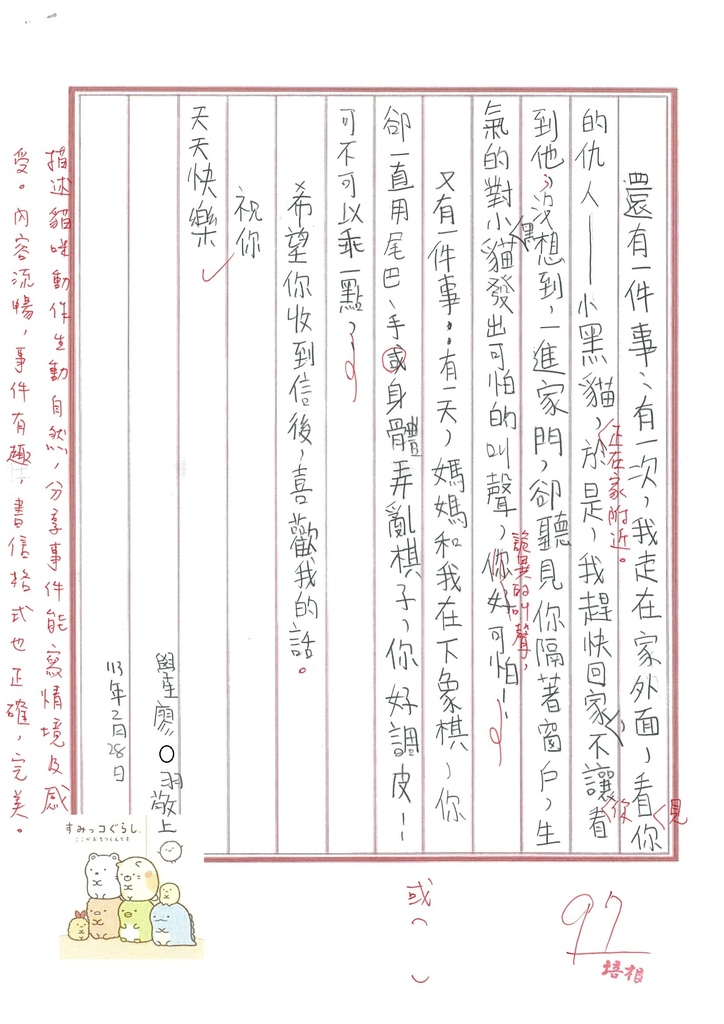 還有一件事：有一次，我走在家外面，看你
見
的仇人——小黑貓，於是，我趕快回家不讓看
正在家附近。
，
你
到他，沒想到，一進家門，卻聽見你隔著窗戶，生
黑
氣的對小貓發出可怕的叫聲，你好可怕！
詭異的叫聲，
又有一件事：有一天，媽媽和我在下象棋，你
卻一直用尾巴、手或身體弄亂棋子，你好調皮！
可不可以乖一點？
希望你收到信後，喜歡我的話。
祝你
天天快樂
學生廖○羽敬上
113年2月28日
描述貓咪動作生動自然，分享事件能寫情境及感
受。內容流暢，事件有趣，書信格式也正確，完美。
すみっコぐらし
ここがおちつくんです
或（ ）
97